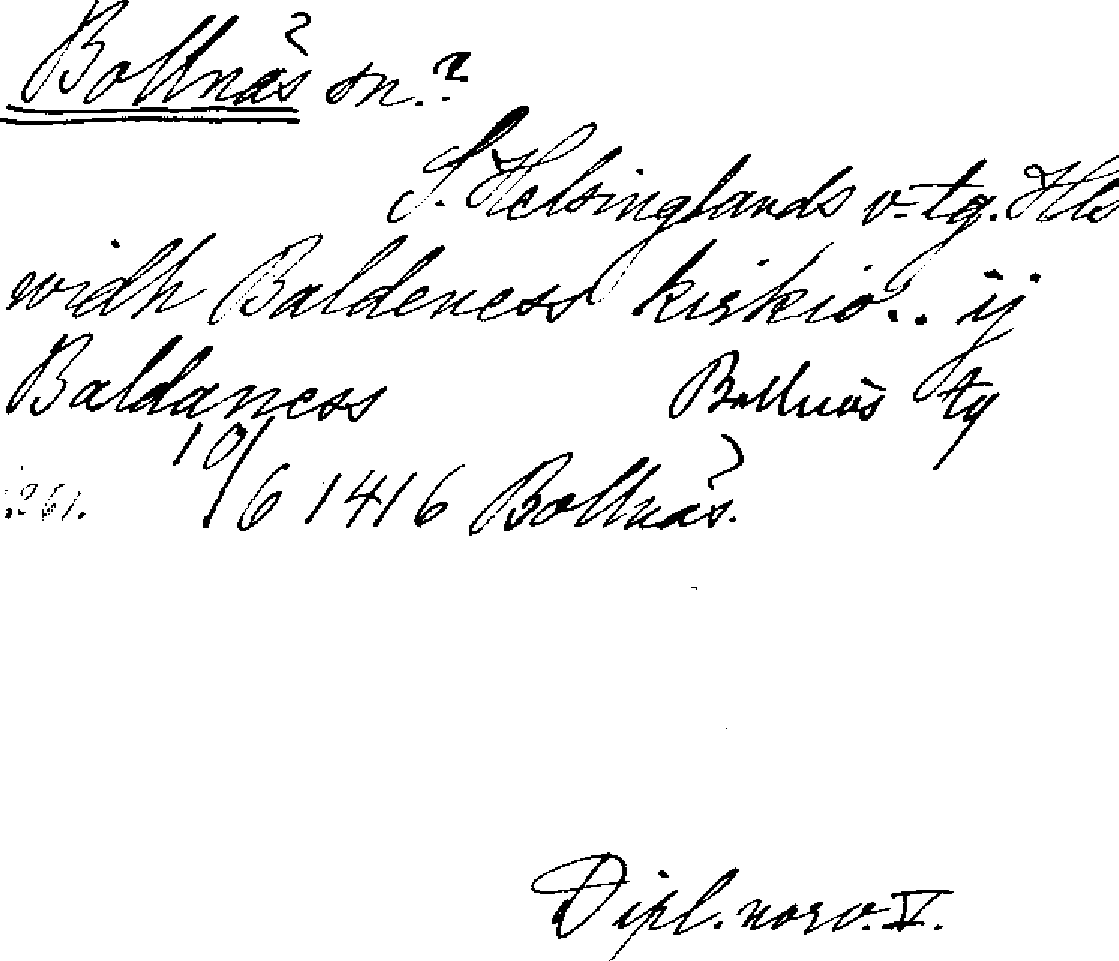 Bollnäs sn.?
S. Helsinglands v. tg. Hls
widh Baldeness kirkio.. ij
Baldaness Bollnäs tg
10/6 1416 Bollnäs.
Dipl. norv. V.